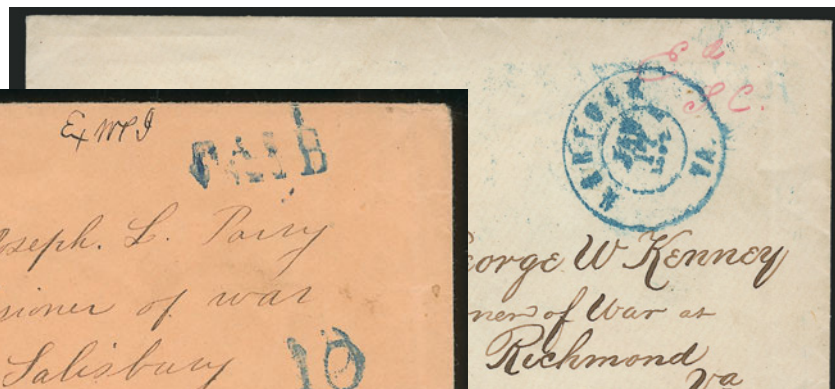 Ex WPJ
PAID
oseph. L. Parry
isoner of war
Salisbury
10
Ed
J.C.
NORFOLK VA.
eorge W Kenney
ner of War at
Richmond
Va